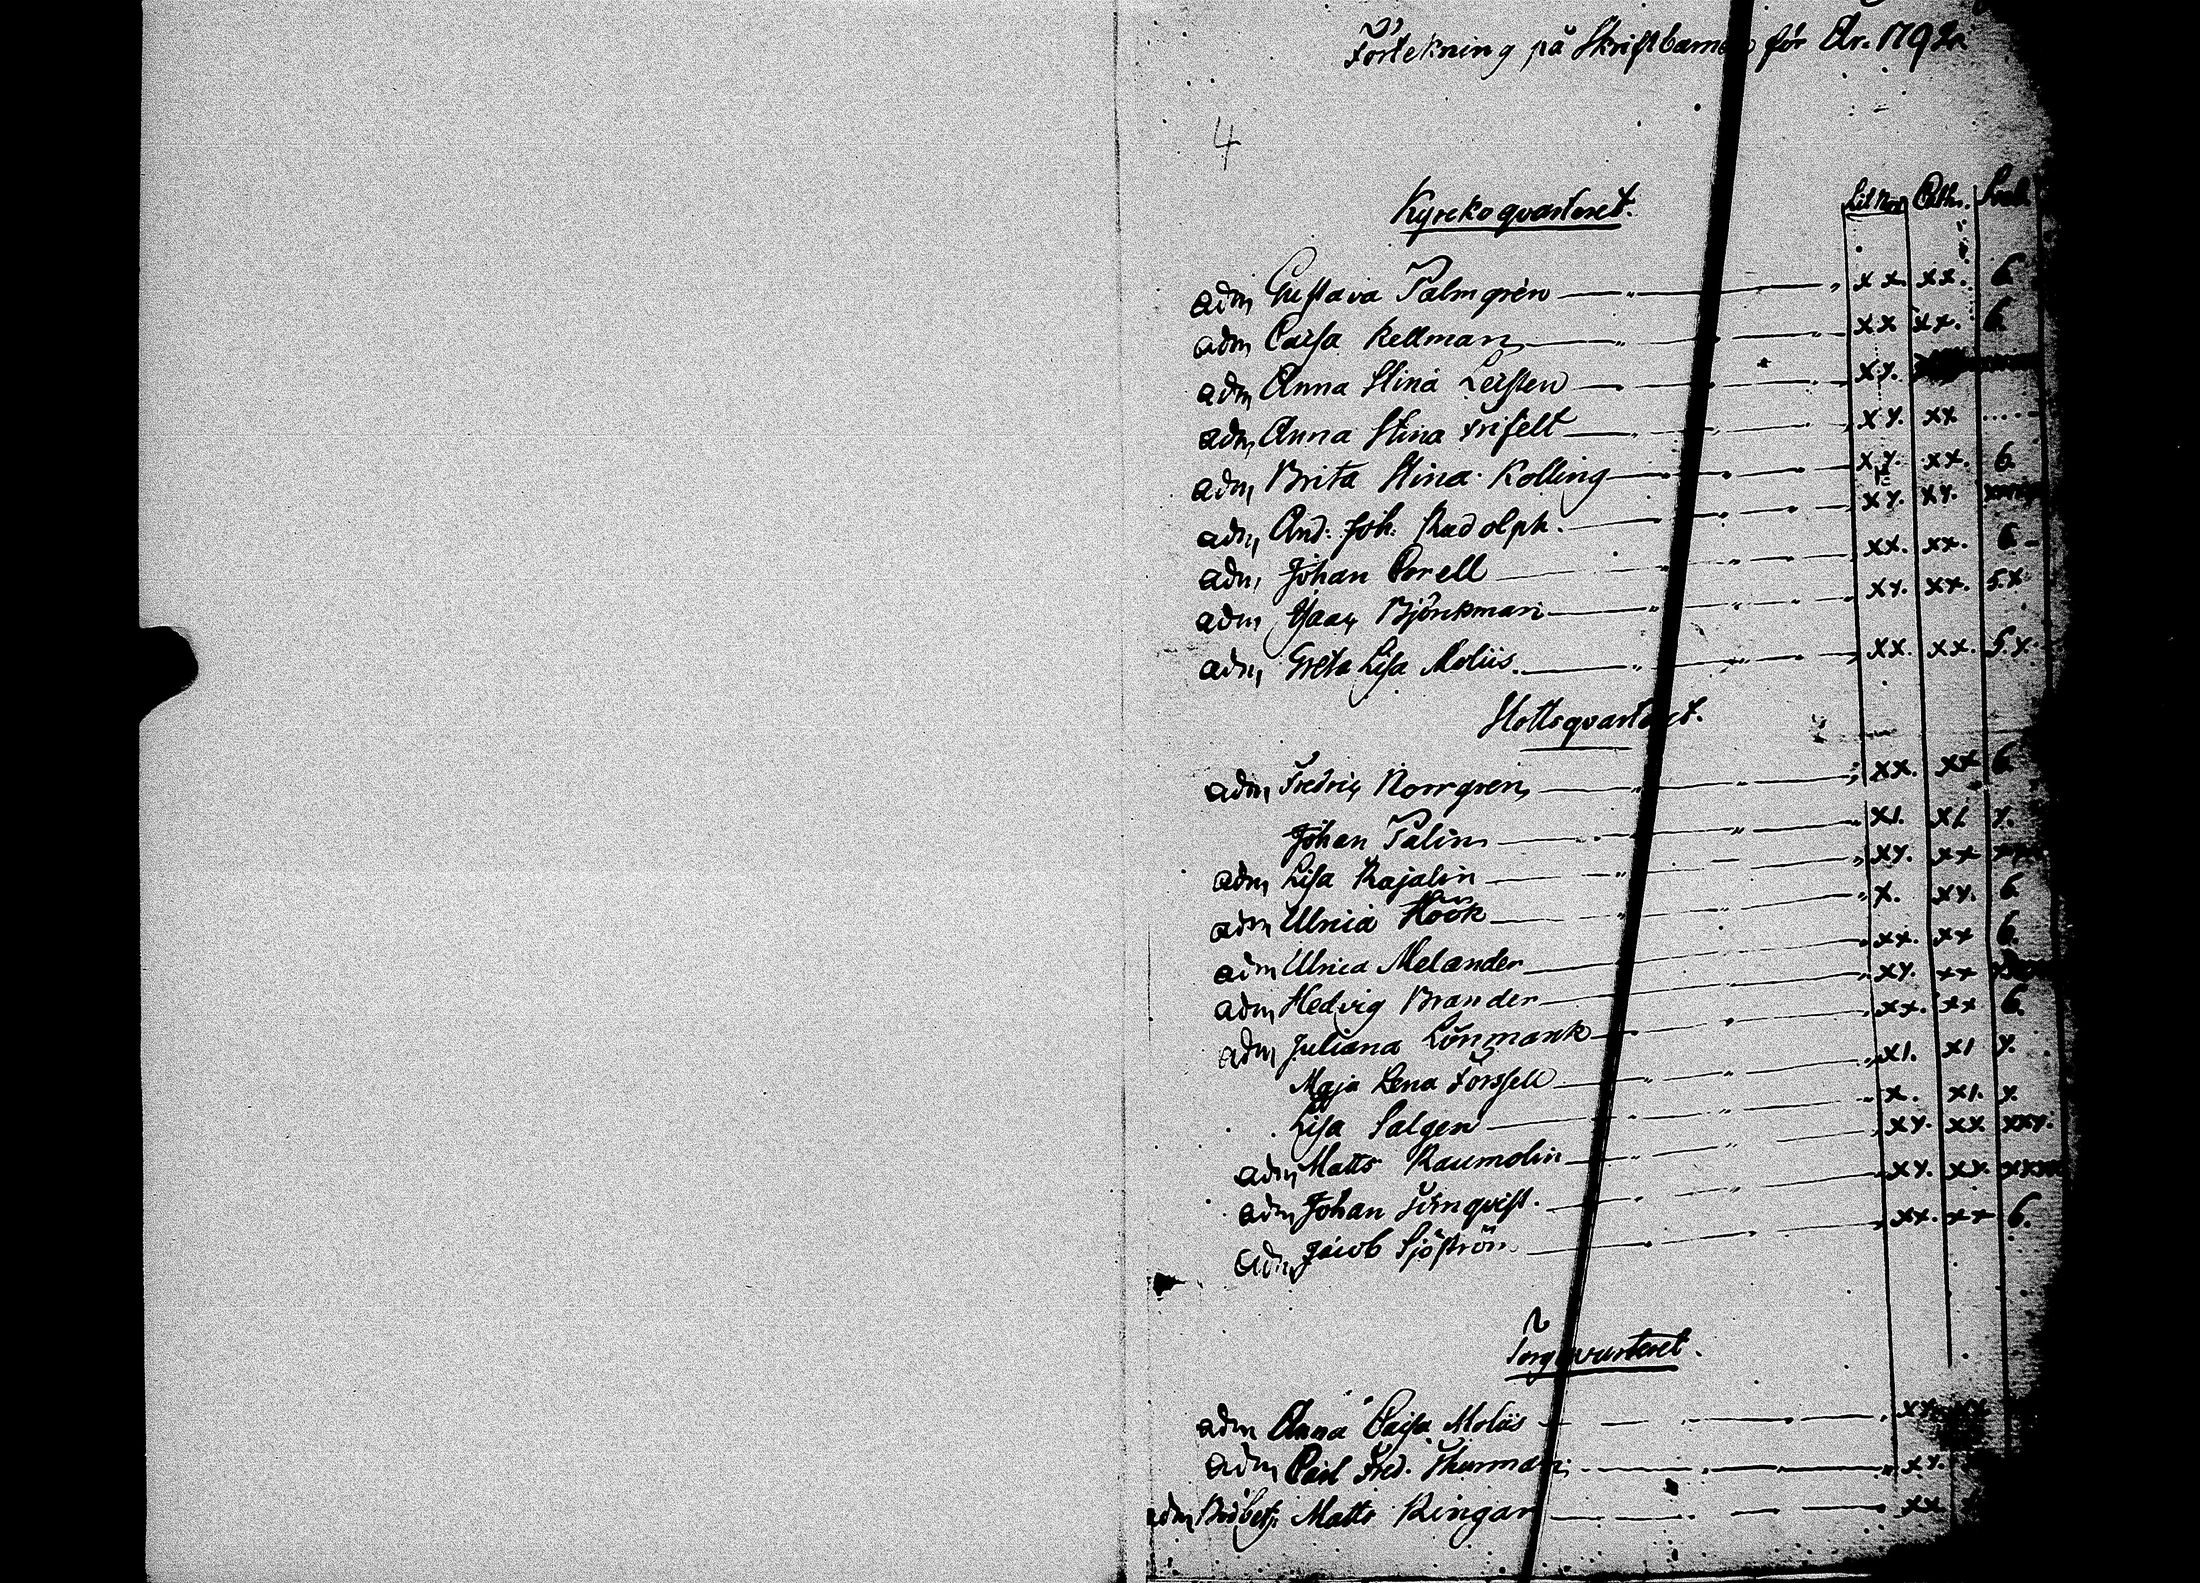 Förtekning på Skriftbarnen för År. 1792.
4
Kyrckoqvarteret.
Lit Nov Cath. Svab.
adm Gustava Palmgren xx. xx. 6.
adm Caisa Kellman xx xx. 6.
adm Anna Stina Leisten xy.
adm Anna Stina Frifelt xy. xx ....
adm Brita Stina Kolling xy. xx. 6.
adm And: Joh: Rudolph. xy. xy.
adm Johan Porell xx. xx. 6.
adm Isaac Björkman xy. xx. 5.x
adm Greta Lisa Moliis. xx. xx. 5.x.
Slottsqvarteret.
adm Fredric Norrgren xx. xx 6.
Johan Palin x1. x1 y.
adm Lisa Rajalin xy. xx
adm Ulrica Höök x. xy. 6.
adm Ulrica Melander xx. xx 6.
adm Hedvig Brander xy. xx
adm Juliana Lönmark xx. xx 6.
Maja Lena Forssell x1. x1 y.
Lisa Salgen x. x1. y.
adm Matts Raumolin xy. xx xxy.
adm Johan Törnqvist. xy. xx.
adm Jacob Sjöström xx. xx 6.
Torgqvarteret.
adm Anna Caisa Moliis
adm Carl Fred. Thurman xy.
adm Matts Ringar xx